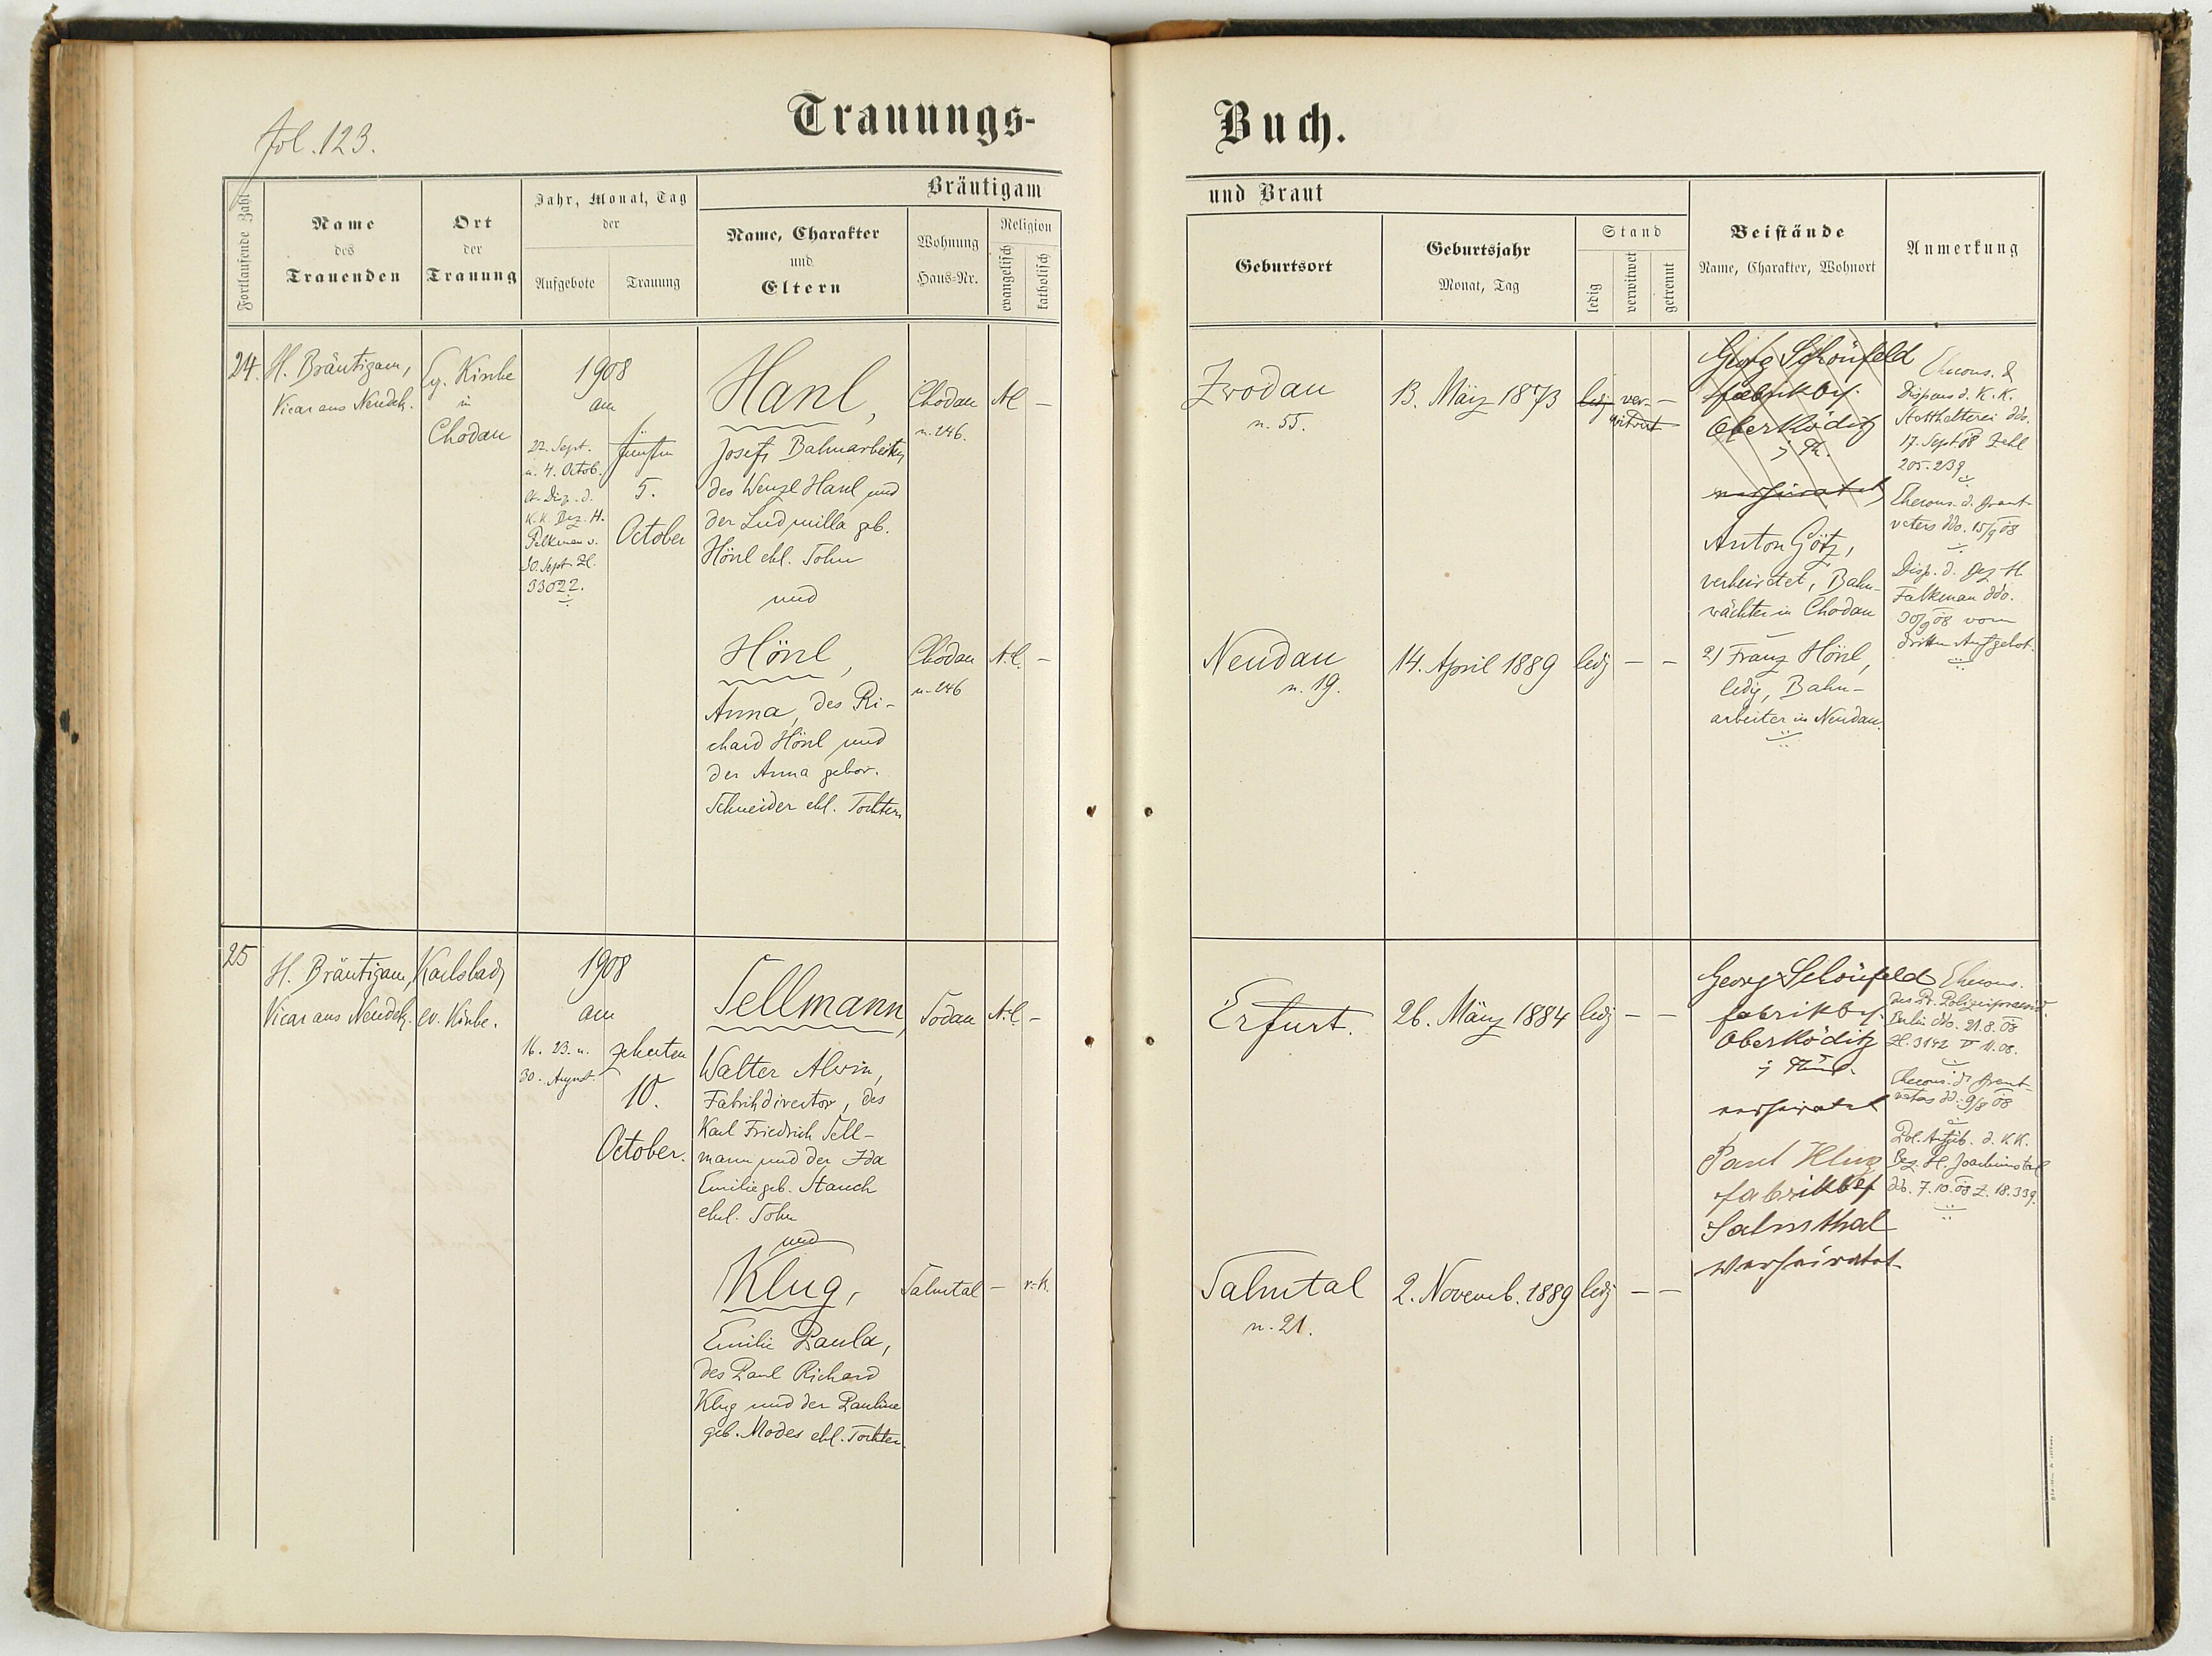 fol. 123.
Trauungs-
Buch.
Fortlaufende Zahl
Name
des
Trauenden
Ort
der
Trauung
Jahr, Monat, Tag
der
Aufgebote
Trauung
Bräutigam
Name, Charakter
und
Eltern
Wohnung
Haus-Nr.
Religion
evangelisch
katholisch
und Braut
Geburtsort
Geburtsjahr
Monat, Tag
Stand
ledig
verwitwet
getrennt
Beistände
Name, Charakter, Wohnort
Anmerkung
24.
H. Bräutigam,
Vicar aus Neudek.
Ev. Kirche
in
Chodau
1908
am
22. Sept.
u. 4. Octob.
K. K. Bez. H.
Falkenau v.
30. Sept. Zl.
33022.
fünften
5.
October
Hanl,
Josef, Bahnarbeiter,
des Wenzl Hanl und
der Ludmilla geb.
Hönl ehl. Sohn
und
Hönl,
Anna, des Ri-
chard Hönl und
der Anna gebor.
Schneider ehl. Tochter
Chodau
n. 246.
A.C.
–
Chodau
n. 246
A.C.
–
Zwodau
n. 55.
13. März 1873
ledig
ver-
witwet
–
Neudau
n. 19.
14. April 1889
ledig
–
–
Georg Schönfeld
fabrikbes.
Oberköditz
i Th.
verheiratet
Anton Götz,
verheiratet, Bahn-
wächter in Chodau
2) Franz Hönl,
ledig, Bahn-
arbeiter in Neudau.
Ehecons. &
Dispens d. K. K.
Statthalterei ddo.
17. Sept 08 Zahl
205.239
Ehecons. d. Braut-
vaters ddo. 15/9 08
Disp. d. Bez. H.
Falkenau ddo.
30/9 08 vom
dritten Aufgebot.
25
H. Bräutigam,
Vicar aus Neudek.
Karlsbad,
ev. Kirche.
1908
am
16. 23. u.
30. August.
zehnten
10.
October.
Sellmann,
Walter Alwin,
Fabrikdirector, des
Karl Friedrich Sell-
mann und der Ida
Emilie geb. Stauch
ehel. Sohn
und
Klug,
Emilie Paula,
des Paul Richard
Klug und der Pauline
geb. Modes ehl. Tochter.
Sodau
A.C.
–
Salmtal
–
r.-k.
Erfurt.
26. März 1884
ledig
–
–
Salmtal
n. 21.
2. Novemb. 1889
ledig
–
–
Georg Schönfeld
fabrikbes.
Oberköditz
i Thür.
verheiratet
Paul Klug
fabrikbes
Salmthal
verheiratet
Ehecons.
des Pr. Polizeipraesid.
Berlin ddo. 21.8.08
Ehecons. d. Braut-
vaters dd. 9/8 08
Pol. Aufgeb. d. K.K.
Bez. H. Joachimstal
dd. 7.10.08 Z. 18.339.